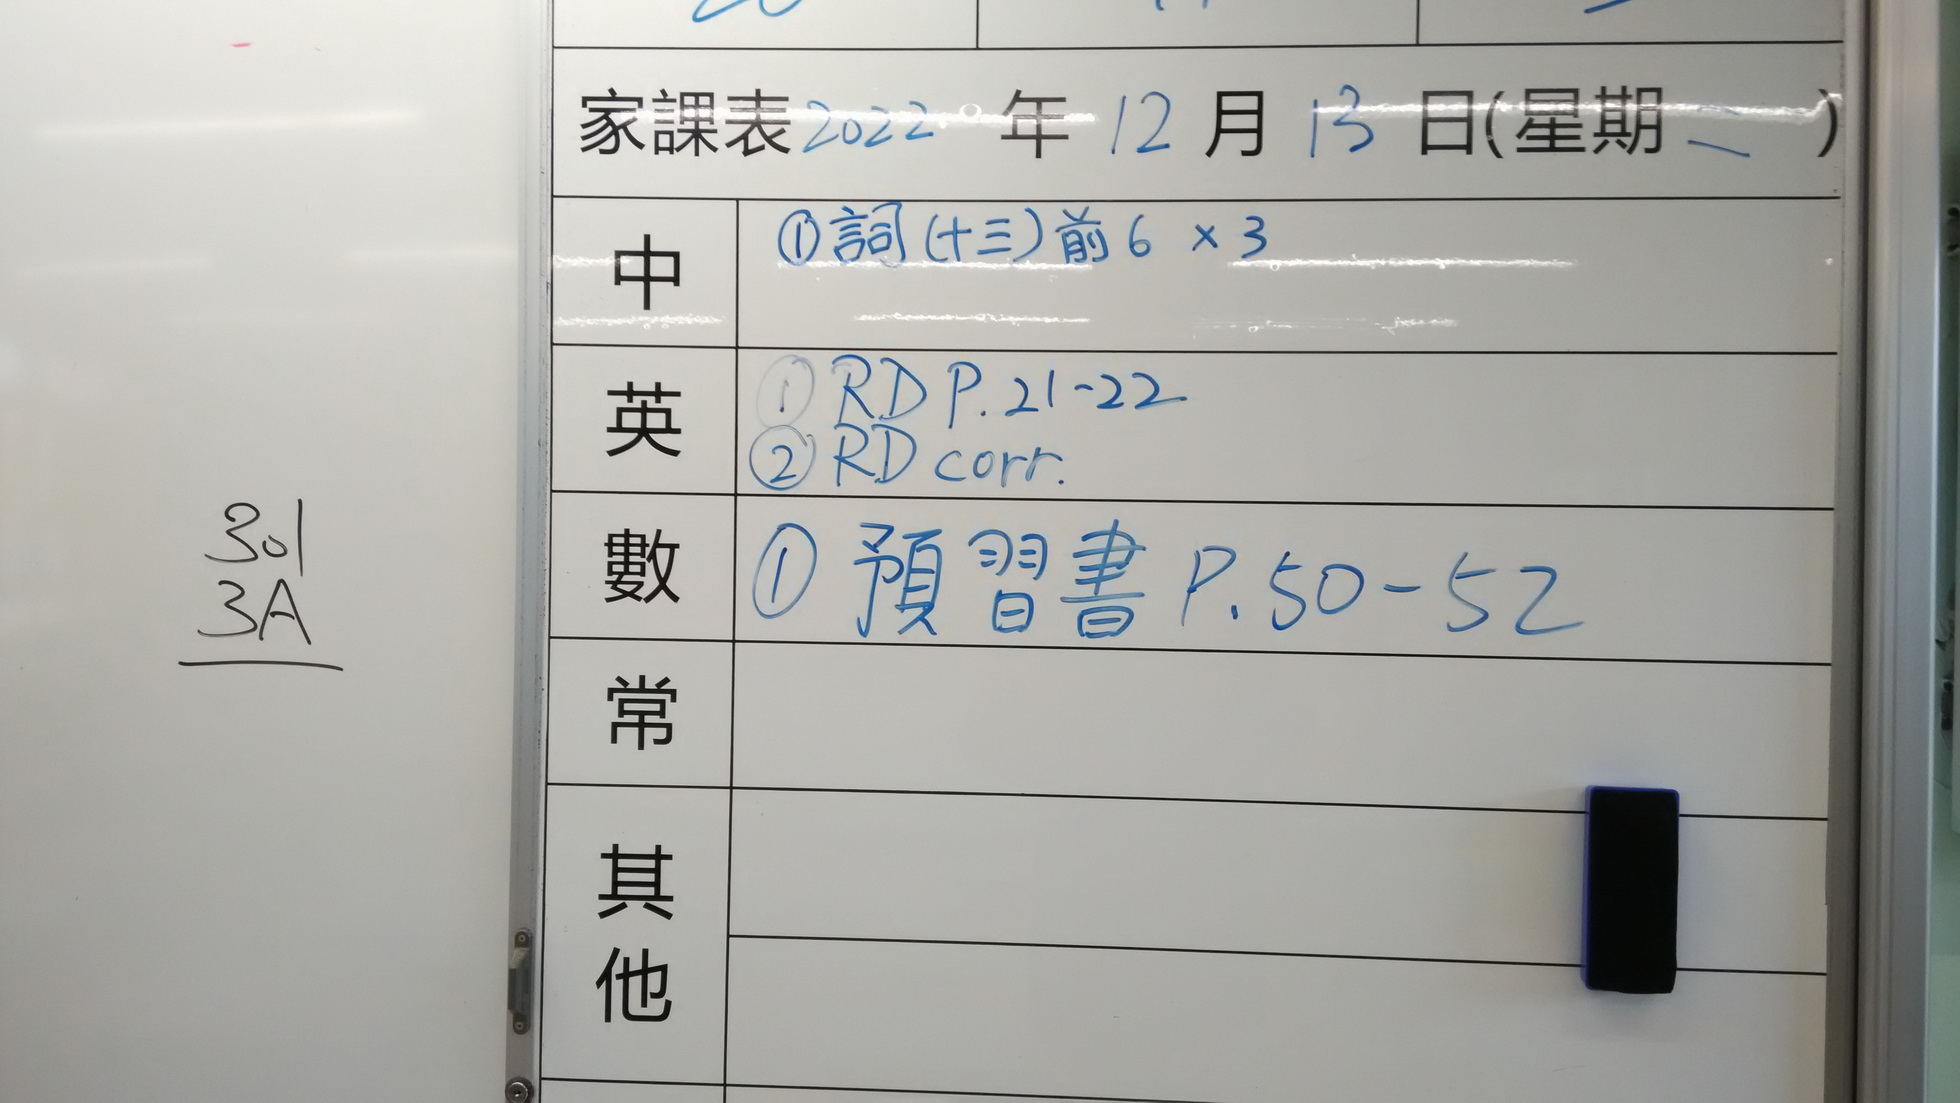 家課表 2022 年 12 月 13 日(星期二)
中 ①詞(十三)前6 ×3
英 ① RD P.21-22
② RD corr.
數 ① 預習書 P.50-52
常
其他
301
3A